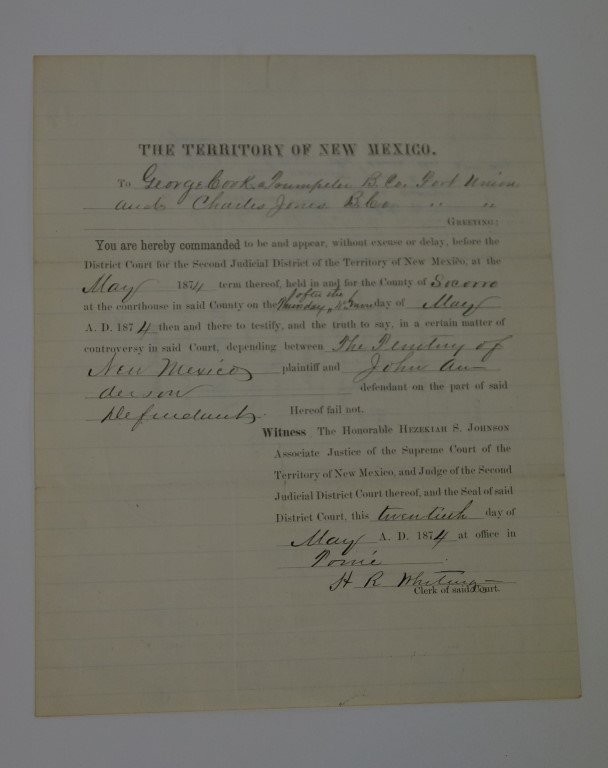 THE TERRITORY OF NEW MEXICO.
To George Cook a Trumpeter B. Co. Fort Union
and Charles Jones B. Co. " "
GREETING:
You are hereby commanded to be and appear, without excuse or delay, before the
District Court for the Second Judicial District of the Territory of New Mexico, at the
May 1874 term thereof, held in and for the County of Socorro
after the
at the courthouse in said County on the Thursday 4th day of May
A. D. 1874 then and there to testify, and the truth to say, in a certain matter of
controversy in said Court, depending between The Territory of
New Mexico plaintiff and John An-
derson defendant on the part of said
Defendant Hereof fail not.
Witness The Honorable HEZEKIAH S. JOHNSON
Associate Justice of the Supreme Court of the
Territory of New Mexico, and Judge of the Second
Judicial District Court thereof, and the Seal of said
District Court, this twentieth day of
May A. D. 1874 at office in
H R Whiting
Clerk of said Court.